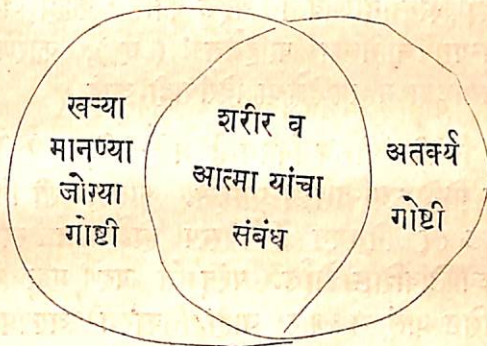 खऱ्या
मानण्या
जोग्या
गोष्टी
शरीर व
आत्मा यांचा
संबंध
अतर्क्य
गोष्टी